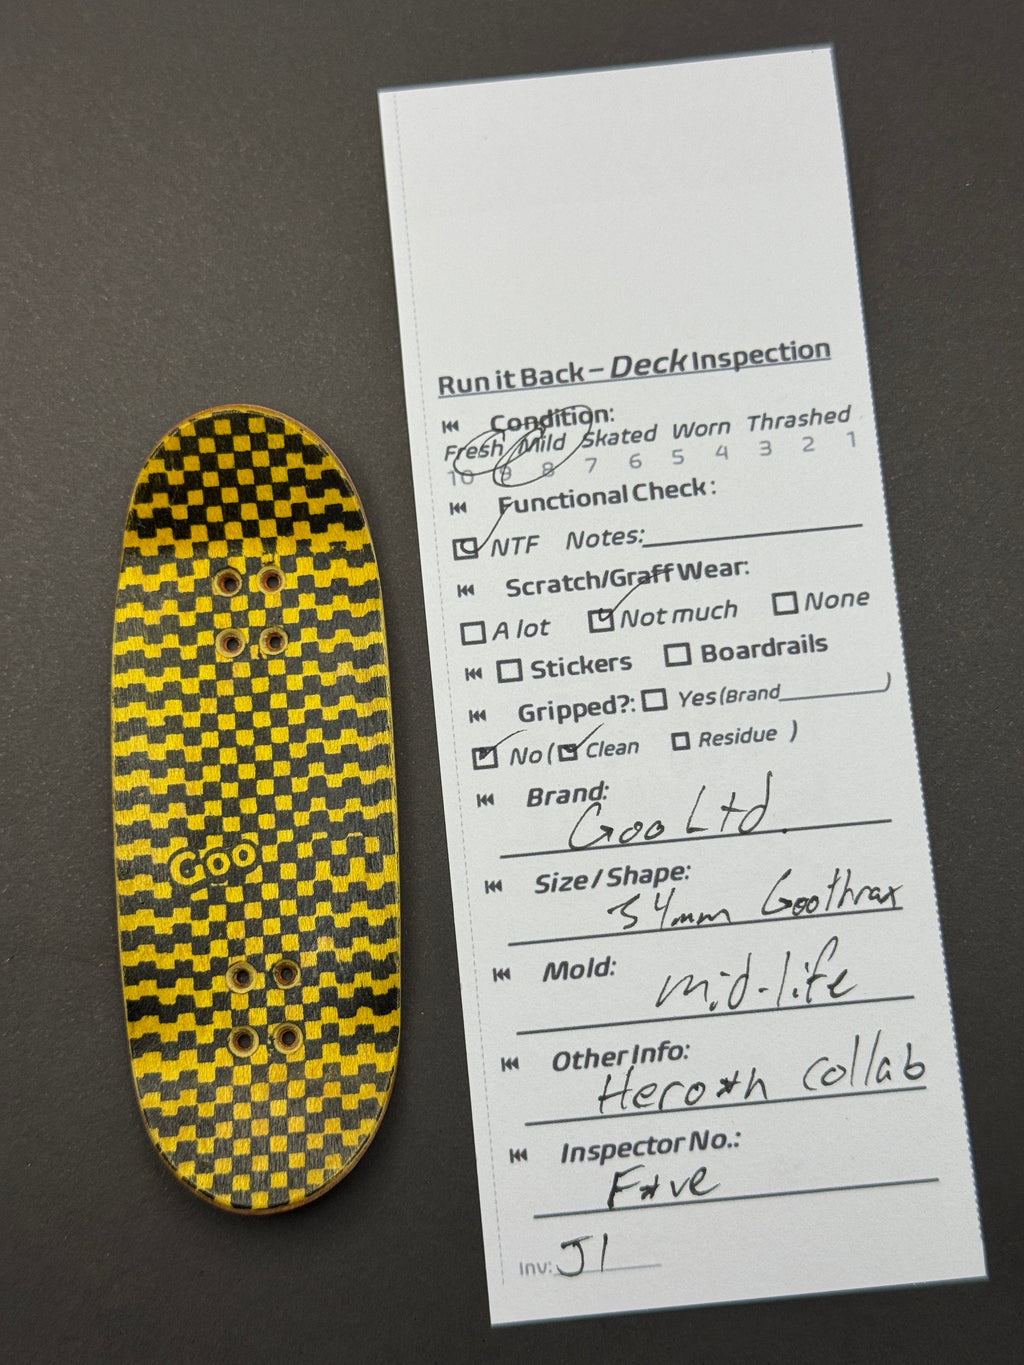 Run it Back – Deck Inspection
Condition:
Fresh Mild Skated Worn Thrashed
10 9 8 7 6 5 4 3 2 1
Functional Check:
NTF Notes:
Scratch/Graff Wear:
A lot Not much None
Stickers Boardrails
Gripped?: Yes (Brand )
No ( Clean Residue )
Brand:
Goo Ltd.
Size / Shape:
34mm Goothrax
Mold:
mid-life
Other Info:
Hero*h collab
Inspector No.:
F*ve
Inv: J1
Goo